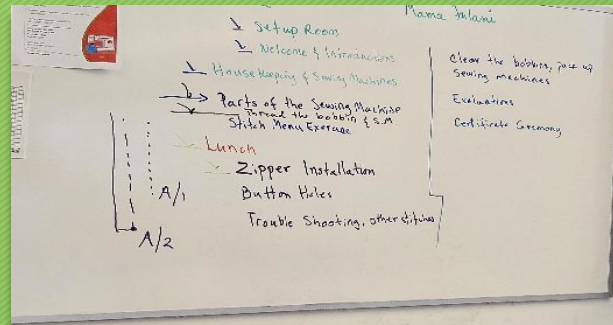 Mama Fulani
Setup Room
Welcome & Introductions
House Keeping & Sewing Machines
Parts of the Sewing Machine
Thread the bobbin & S.M
Stitch Menu Exercise
Lunch
Zipper Installation
Button Holes
Trouble Shooting, other stitches
A/1
A/2
Clean the bobbins, up
sewing machines
Evaluations
Certificate Ceremony